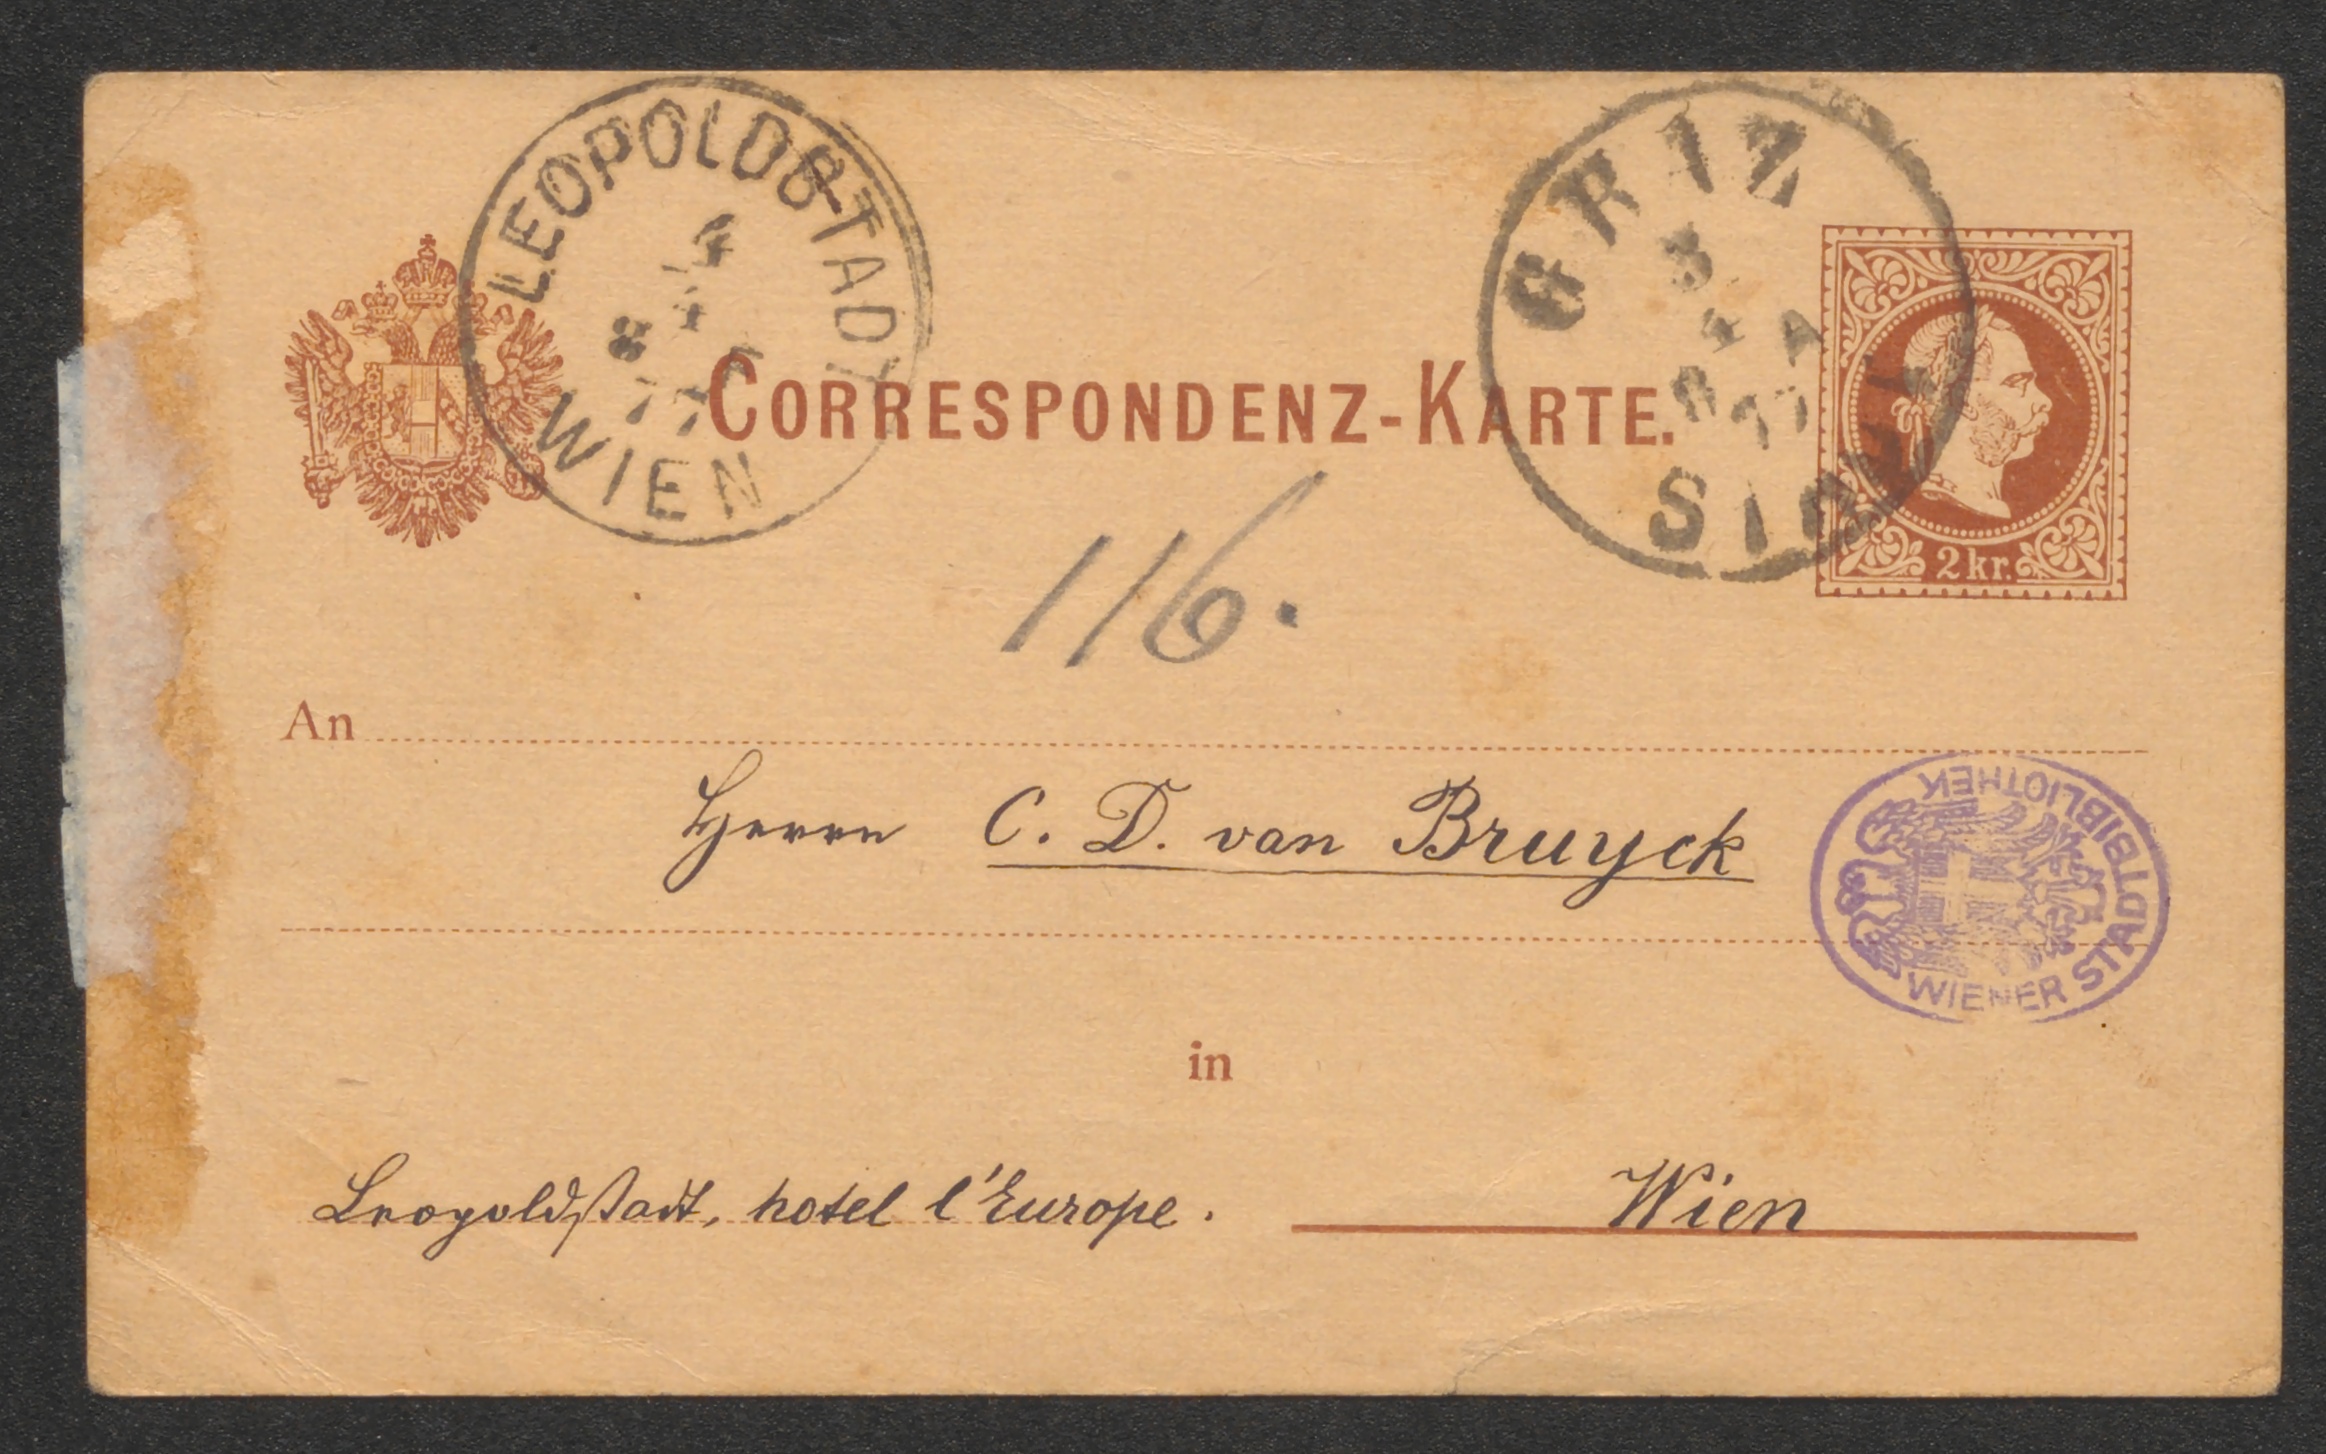 LEOPOLDSTADT
WIEN
4 4
8 77
GRAZ
3
4
77
CORRESPONDENZ-KARTE.
2 kr.
116.
An
Herrn C. D. van Bruyck
WIENER STADTBIBLIOTHEK
in
Leopoldstadt, hotel l'Europe.
Wien